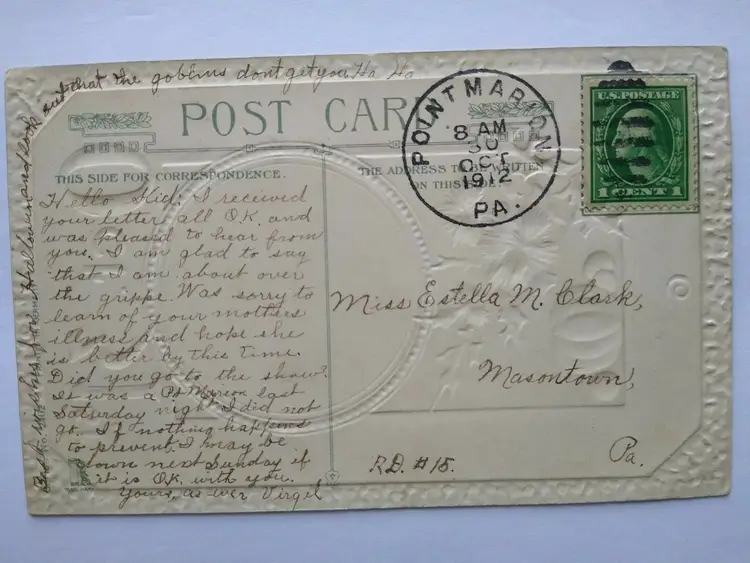 that the goblins dont get you Ha Ha
POST CARD
THIS SIDE FOR CORRESPONDENCE.
THE ADDRESS TO BE WRITTEN
ON THIS SIDE.
POINT MARION
8 AM
30
OCT
1912
PA.
U.S. POSTAGE
1 CENT 1
Hello Kid; I received
your letter all O.K. and
was pleased to hear from
you. I am glad to say
that I am about over
the grippe. Was sorry to
learn of your mothers
illness and hope she
is better by this time.
Did you go to the show?
It was a Pt Marion last
Saturday night I did not
go. If nothing happens
to prevent I may be
down next Sunday if
it is O.K. with you.
Yours, as ever Virgel
Miss Estella M. Clark,
Masontown,
Pa.
R.D. #15.
Halloween and look out